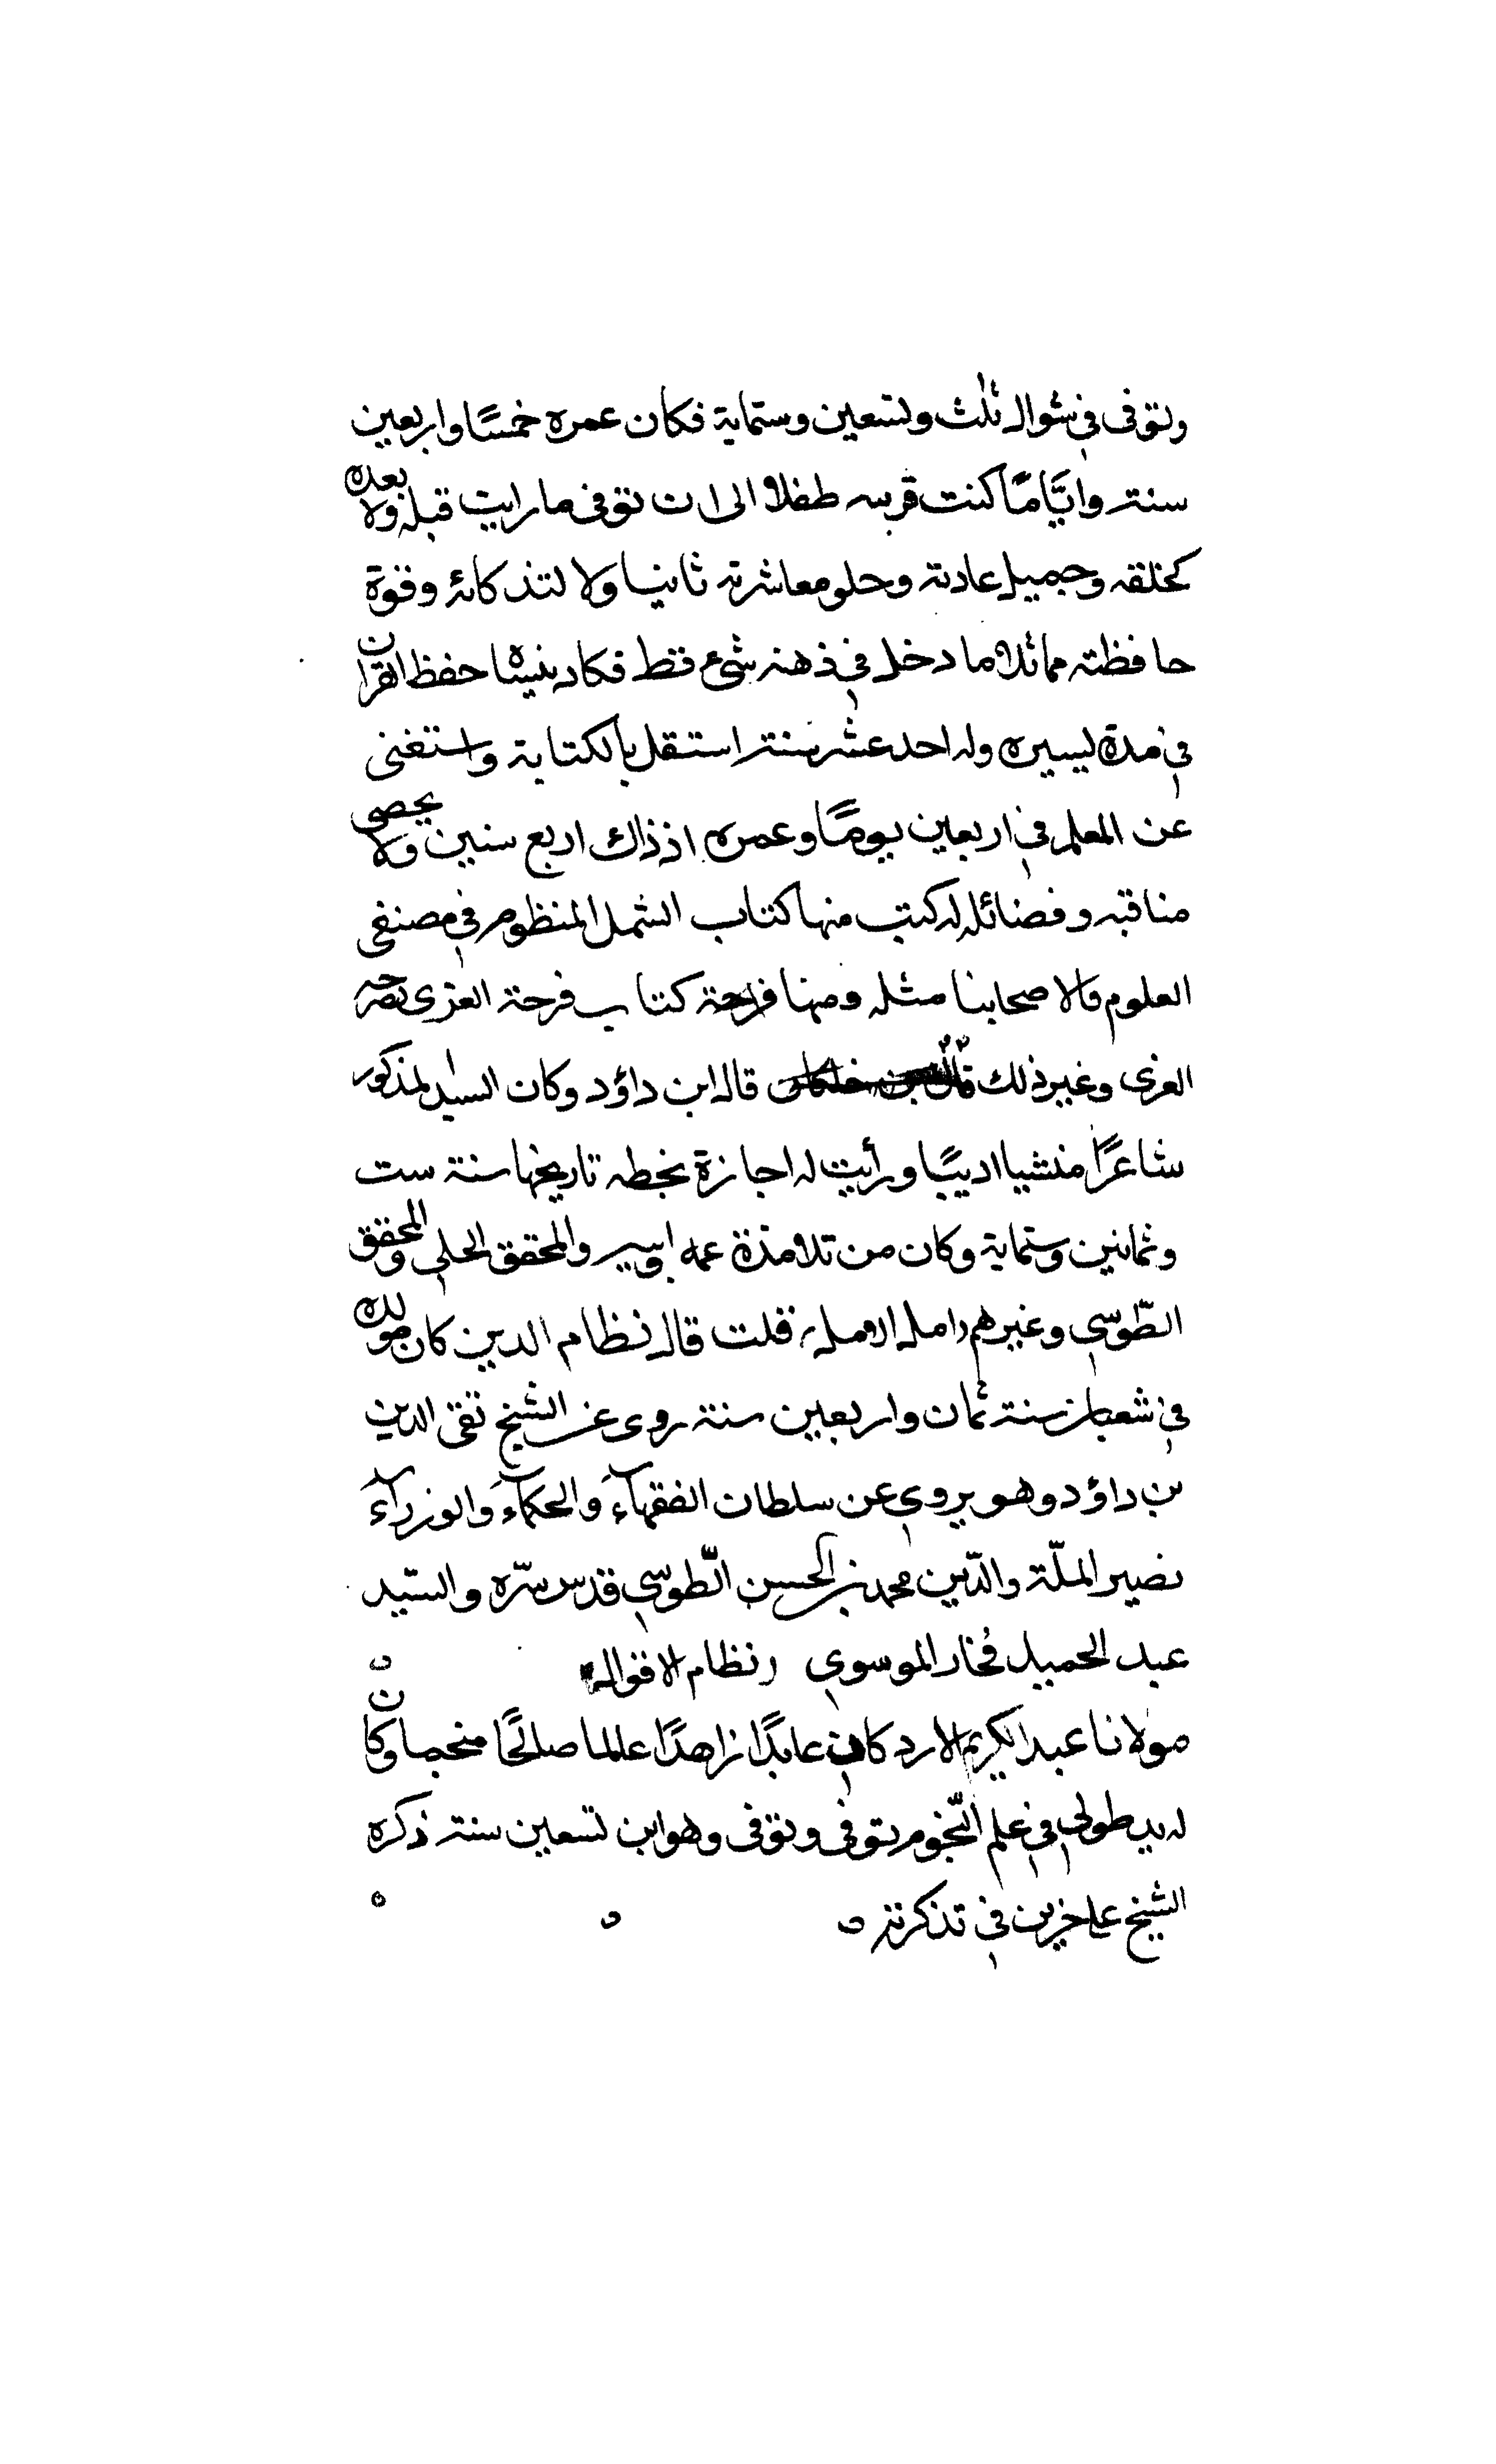 وتوفى فى شوال ثلث وتسعين وستماية فكان عمره خمسًا واربعين
سنة وايَّامًا كنت قرينه طفلا الى ان توفى ما رايت قبله ولا بعده
كخلقه وجميل عادته وحلو معاشرته ثانيا ولا لذكائه وقوة
حافظته مماثلا ما دخل في ذهنه شئ فقط فكاد ينساه حفظ القران
في مدة يسيره وله احد عشر سنة استقل بالكتابة واستغنى
عن المعلم في اربعين يومًا وعمره اذ ذاك اربع سنين ولا يحصى
مناقبه وفضائله له كتب منها كتاب الشمل المنظوم في مصنفى
العلوم مالاصحابنا مثله ومنها كتاب فرحة الغرى بصرحه
الغرى وغير ذلك قال ابن داؤد وكان السيد المذكور
شاعرًا منشيا اديبًا ورأيت له اجازة بخطه تاريخها سنة ست
وثمانين وستماية وكان من تلامذة عمه وابيه والمحقق الحلي والمحقق
الطّوسي وغيرهم قلت قال نظام الدين كان مولده
في شعبان سنة ثمان واربعين سنة روى عن الشيخ تقى الدين
بن داؤد وهو يروي عن سلطان الفقهآء والحكمآء والوزرآء
نصير الملّة والدّين محمد بن الحسن الطّوسي قدس سرّه والسّيد
عبد الحميد فخار الموسوي نظام الاقوال
مولانا عبد الكريم كان عابدًا زاهدًا عالما صالحًا منجما وكان
له يد طولى في علم النّجوم توفى وهو ابن تسعين سنة ذكره
الشيخ علي حزين في تذكرته